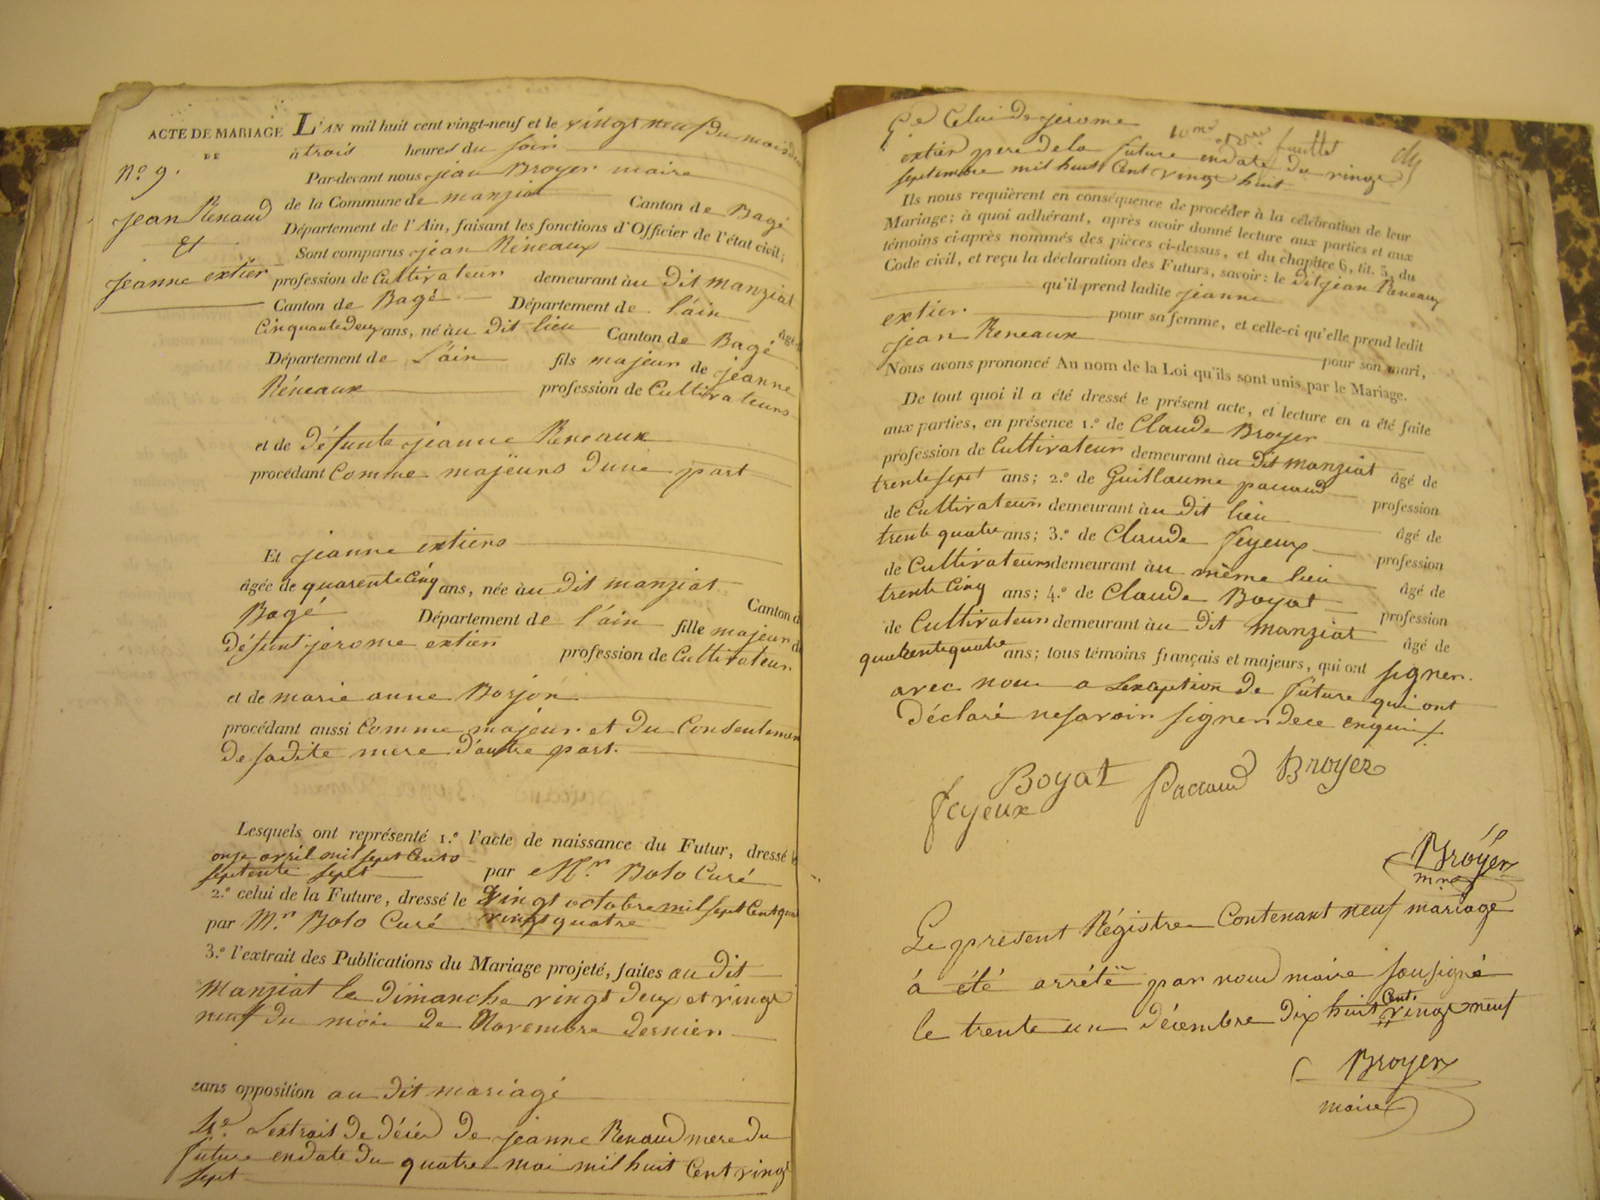 ACTE DE MARIAGE
DE
N° 9.
jean Renaud
Et
jeanne extier
L'AN mil huit cent vingt-neuf et le vingt neuf du mois
à trois heures du soir
Par-devant nous jean Broyer maire
de la Commune de manziat Canton de Bagé
Département de l'Ain, faisant les fonctions d'Officier de l'état civil;
Sont comparus jean Réneaux
profession de Cultivateur demeurant au dit manziat
Canton de Bagé Département de l'ain
âgé
Cinquante deux ans, né au dit lieu Canton de Bagé
Département de L'ain fils majeur de jeanne
Réneaux profession de Cultivateurs
et de défunte jeanne Reneaux
procédant Comme majeurs d'une part
Et jeanne extiers
âgée de quarente Cinq ans, née au dit manziat
Canton d
Bagé Département de l'ain fille majeur d
défunt jerome extier profession de Cultivateur
et de marie anne Borjon
procédant aussi Comme majeur et du Consentemen
de sadite mere d'autre part.
Lesquels ont représenté 1.° l'acte de naissance du Futur, dressé l
onze avril mil sept Cents
septente sept par Mr. Bolo Curé
2.° celui de la Future, dressé le vingt octobre mil sept Cent qua
par Mr. Bolo Curé vingt quatre
3.° l'extrait des Publications du Mariage projeté, faites au dit
Manziat le dimanche vingt deux et vingt
neuf du mois de Novembre dernier
sans opposition au dit mariagé
4° L'extrait de décé de jeanne Renaud mere du
future en date du quatre mai mil huit Cent vingt
sept
Ce Celui de jerome
feuillet
extier pere de la future en date du vingt
septembre mil huit Cent vingt huit
Ils nous requièrent en conséquence de procéder à la célébration de leur
Mariage: à quoi adhérant, après avoir donné lecture aux parties et aux
témoins ci-après nommés des pièces ci-dessus, et du chapitre 6, tit. 5, du
Code civil, et reçu la déclaration des Futurs, savoir: le dit jean Reneaux
qu'il prend ladite jeanne
extier pour sa femme, et celle-ci qu'elle prend ledit
jean Reneaux pour son mari,
Nous avons prononcé Au nom de la Loi qu'ils sont unis par le Mariage.
De tout quoi il a été dressé le présent acte, et lecture en a été faite
aux parties, en présence 1.° de Claude Broyer
profession de Cultivateur demeurant au dit manziat âgé de
trente sept ans; 2.° de Guillaume paccaud profession
de Cultivateur demeurant au dit lieu âgé de
trente quatre ans; 3.° de Claude feyeux profession
de Cultivateurs demeurant au même lieu âgé de
trente Cinq ans; 4.° de Claude Boyat profession
de Cultivateur demeurant au dit manziat âgé de
quarente quatre ans; tous témoins français et majeurs, qui ont signer
avec nous a L'exception de future qui ont
déclaré ne savoir signer de ce enquis
Feyeux Boyat Paccaud Broyer
Broyer
mre
Le present Régistre Contenant neuf mariage
à été arrétée par nous maire sousigné
le trente un décembre dix huit Cent vingt neuf
Broyer
maire